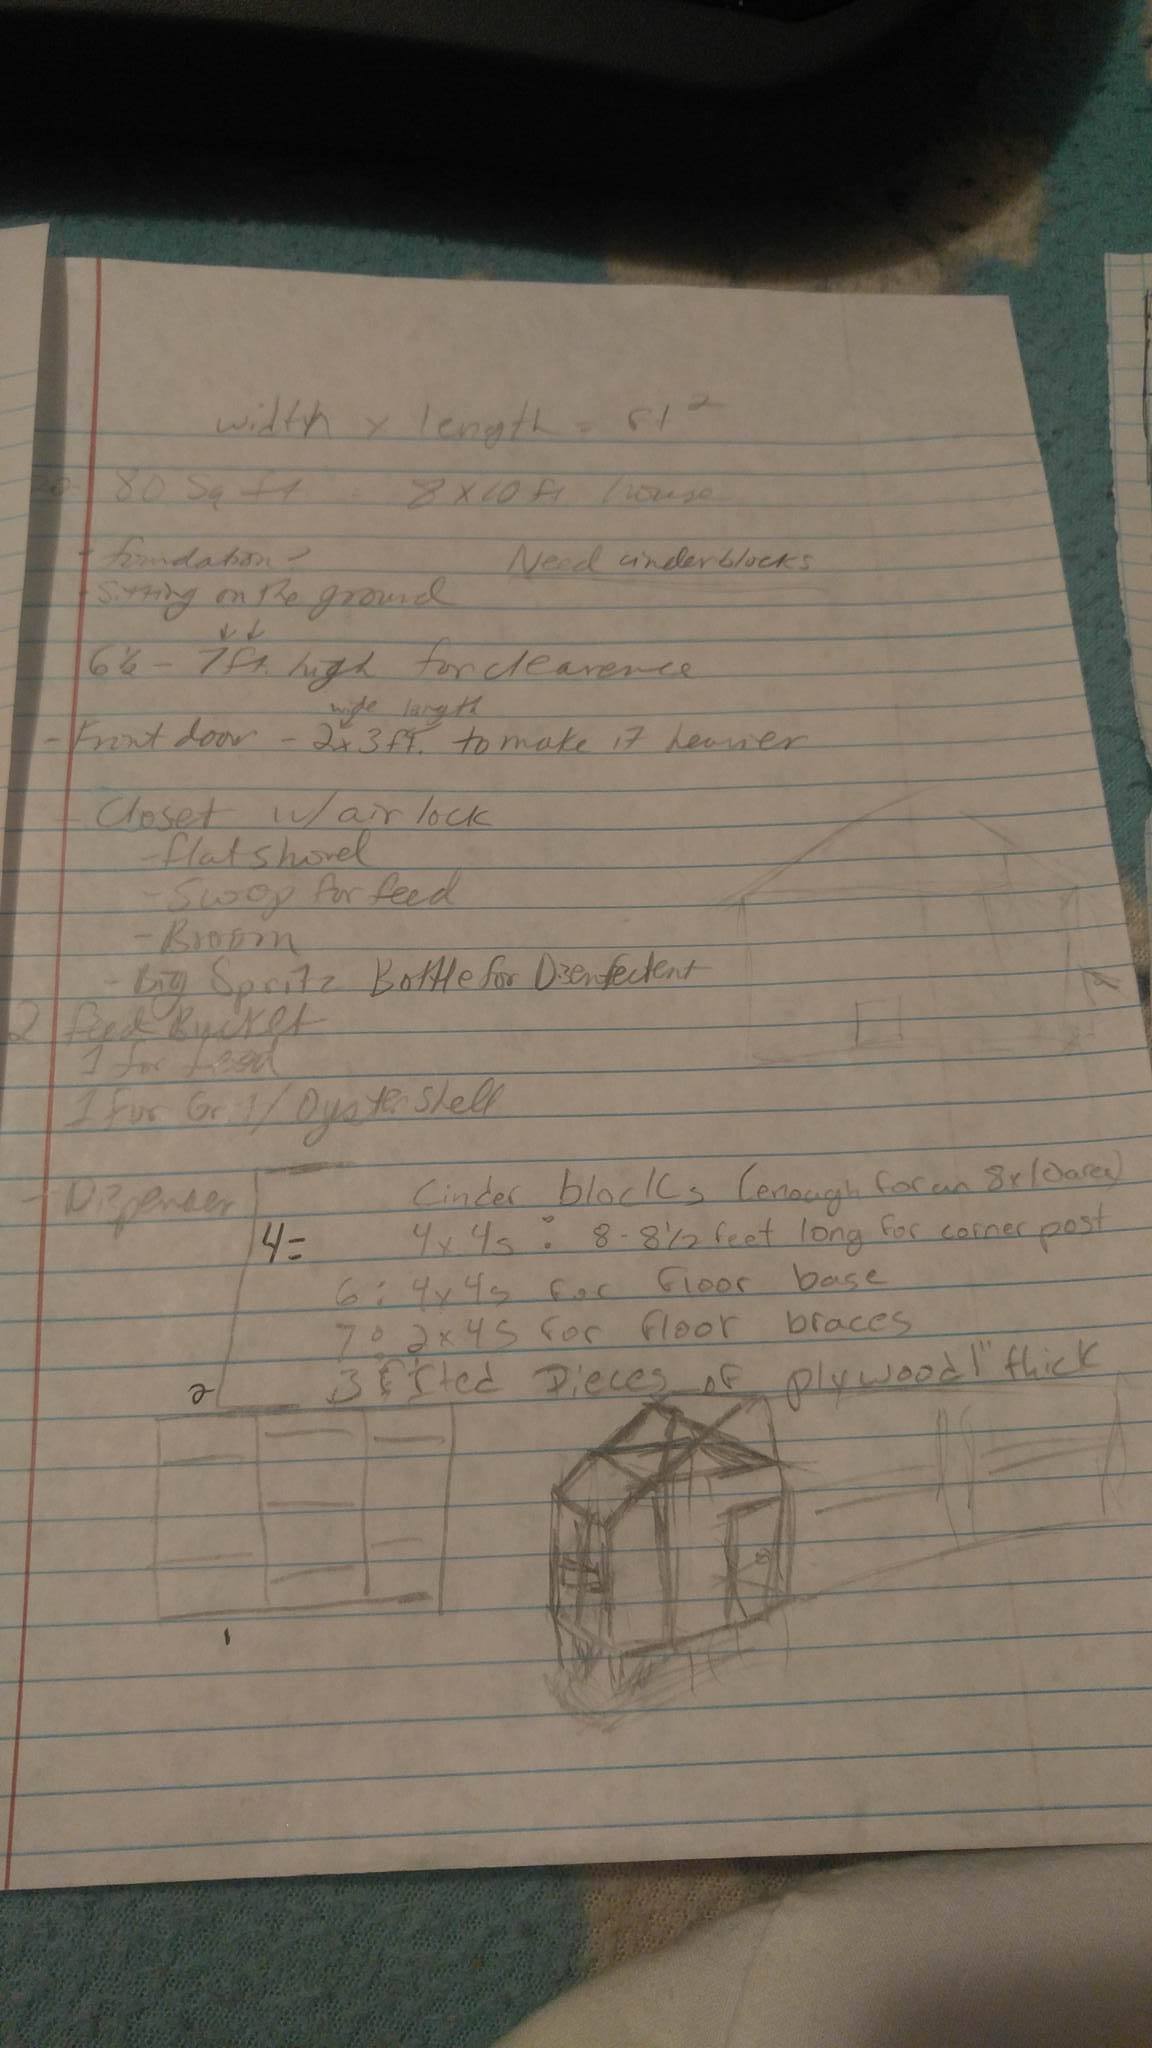 width x length = ft²
80 Sq ft 8x10 ft house
- foundation - Need cinderblocks
- Sitting on the ground
6½ - 7ft. high for clearence
wide length
- Front door - 2x3ft. to make it heavier
- Closet w/ air lock
- flat shovel
- Swoop for feed
- Broom
- Big Spritz Bottle for Disenfectent
2 feed Bucket
1 for feed
1 for Grit/Oyster shell
- Dispenser
Cinder blocks (enough for an 8x10 area)
4= 4x4s : 8-8½ feet long for corner post
6: 4x4s for floor base
7: 2x4s for floor braces
3 pieces of plywood 1" thick
2
1